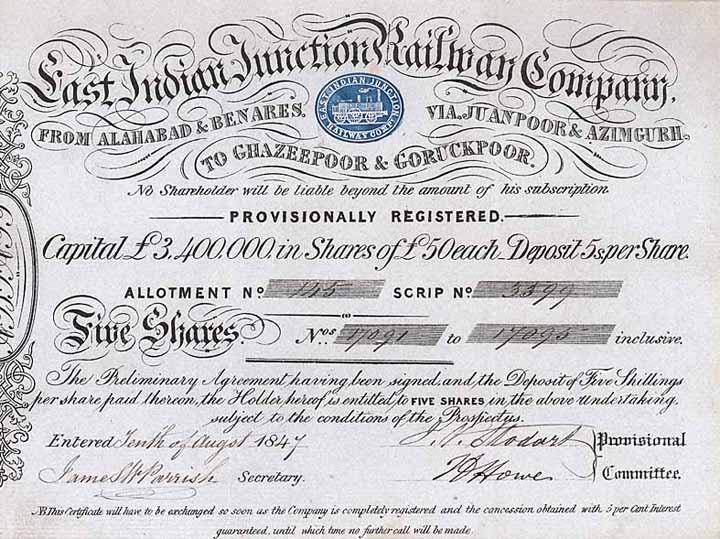 East Indian Junction Railway Company.
EAST INDIAN JUNCTION
RAILWAY COMPY
FROM ALAHABAD & BENARES. VIA. JUANPOOR & AZIMGURH.
TO GHAZEEPOOR & GORUCKPOOR.
No Shareholder will be liable beyond the amount of his subscription
PROVISIONALLY REGISTERED.
Capital £3,400,000 in Shares of £50 each Deposit 5s. per Share.
ALLOTMENT No. 145 SCRIP No. 3399
Five Shares. Nos. 17091 to 17095 inclusive.
The Preliminary Agreement having been signed and the Deposit of Five Shillings
per share paid thereon, the Holder hereof is entitled to FIVE SHARES in the above Undertaking,
subject to the conditions of the Prospectus.
Entered Tenth of Augst 1847 Stodart Provisional
James W Parrish Secretary. Howe Committee.
NB. This Certificate will have to be exchanged so soon as the Company is completely registered and the concession obtained with 5 per Cent Interest
guaranteed, until which time no further call will be made.